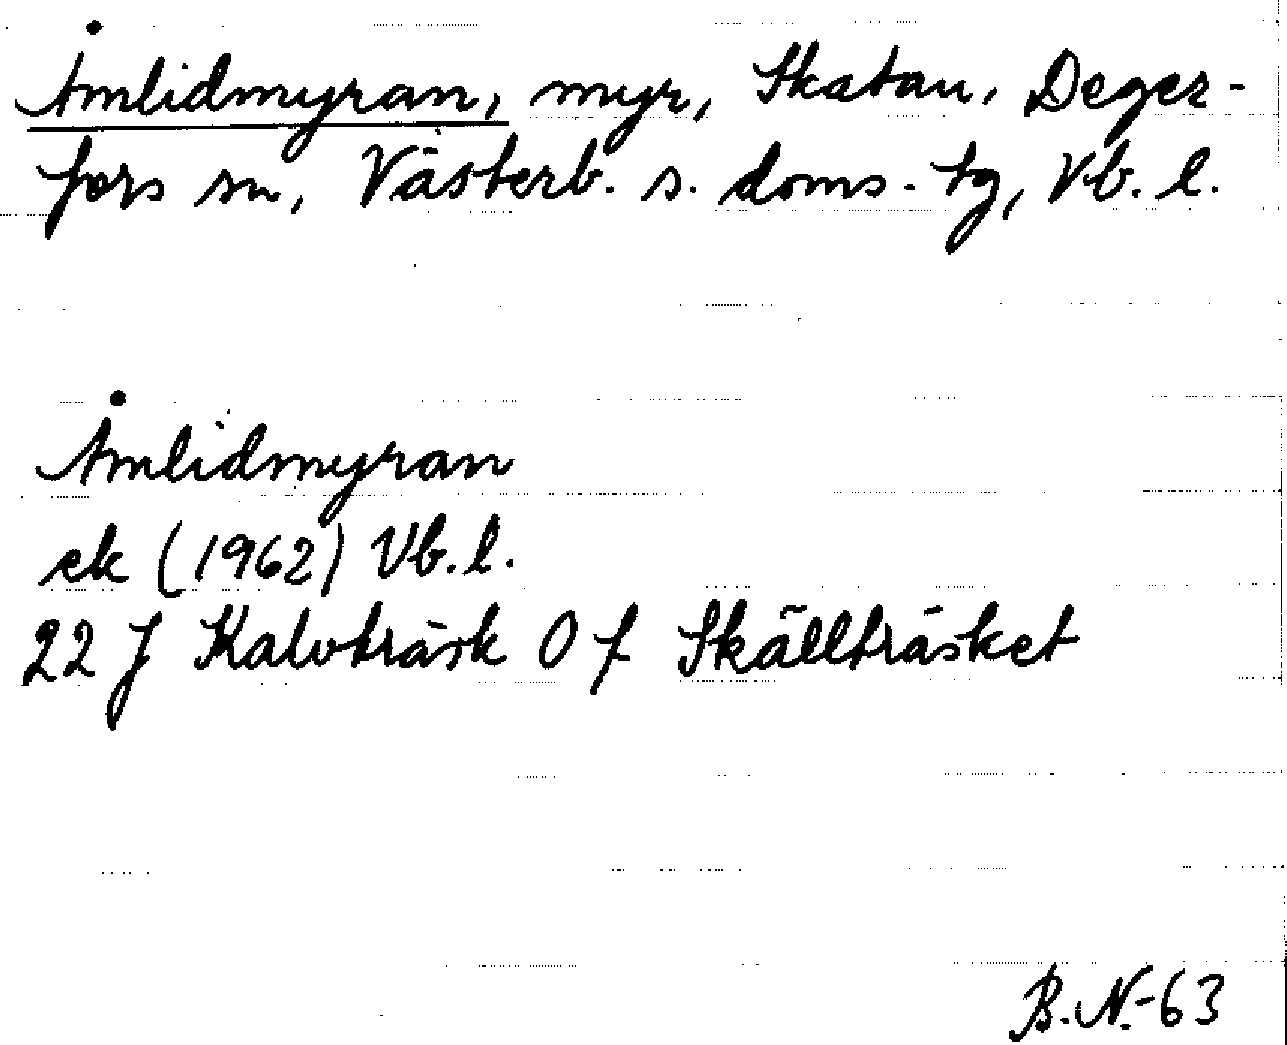 Åmlidmyran, myr, Skatan, Deger-
fors sn, Västerb. s. doms. tg, Vb. l.
Åmlidmyran
ek (1962) Vb. l.
22 J Kalvträsk O f Skällträsket
B.N.-63